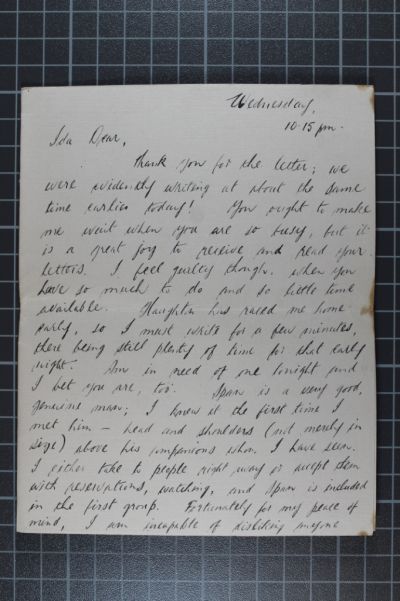 Wednesday,
10.15 pm.
Ida Dear,
Thank you for the letter; we
were evidently writing at about the same
time earlier today! You ought to make
me wait when you are so busy, but it
is a great joy to receive and read your
letters. I feel guilty though, when you
have so much to do and so little time
available. Haughton has raced me home
early, so I must write for a few minutes,
there being still plenty of time for that early
night. Am in need of one tonight and
I bet you are, too. Spam is a very good,
genuine man; I knew it the first time I
met him – head and shoulders (not merely in
size) above his companions whom I have seen.
I either take to people right away or accept them
with reservations, watching, and Spam is included
in the first group. Fortunately for my peace of
mind, I am incapable of disliking anyone